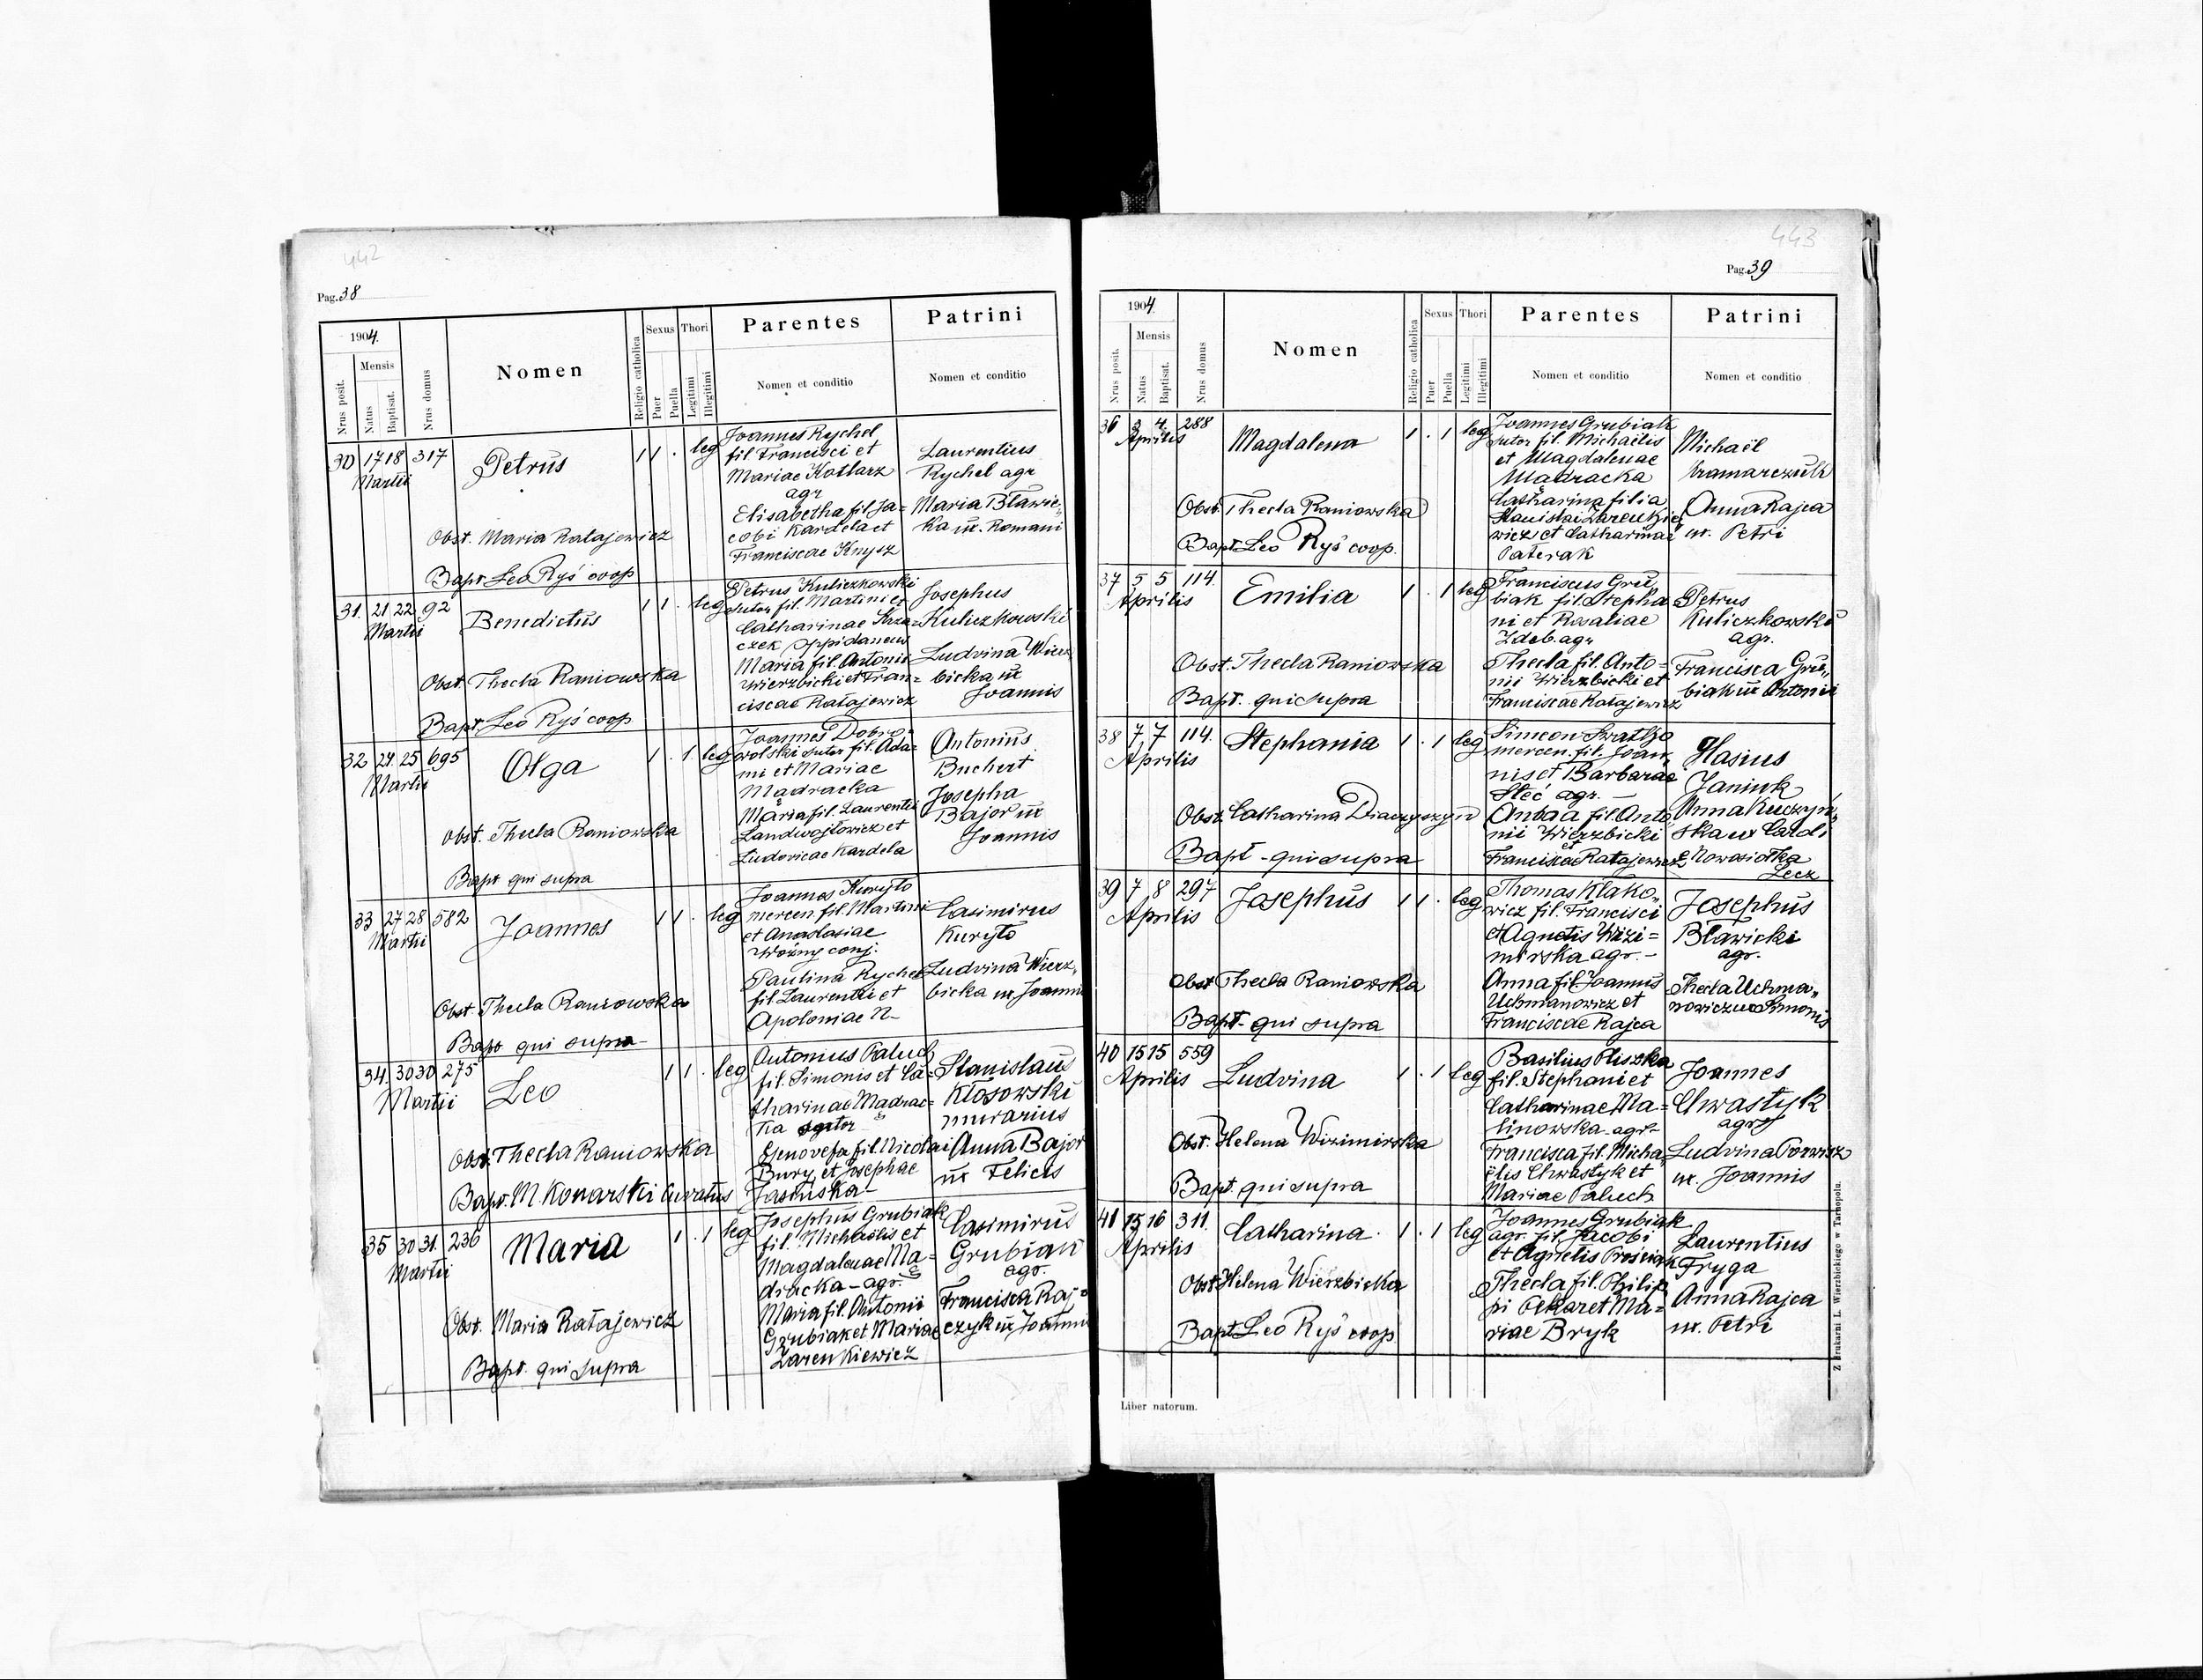 442
Pag. 38
1904.
Nrus posit.
Mensis
Natus
Baptisat.
Nrus domus
Nomen
Religio catholica
Sexus
Puer
Puella
Thori
Legitimi
Illegitimi
Parentes
Nomen et conditio
Patrini
Nomen et conditio
30 17 18 317 Petrus 1 1 . leg
Martii
Joannes Rychel
fil Francisci et
Mariae Kotlarz
agr
Elisabetha fil Ja=
cobi Kardela et
Franciscae Knysz
Laurentius
Rychel agr
Maria Bławic,,
ka ux. Romani
Obst. Maria Ratajewicz
Bapt. Leo Ryś coop
31. 21 22 92 Benedictus 1 1 . leg
Martii
Petrus Kuliczkowski
sutor fil. Martini et
Catharinae Skrza=
czek oppidaneus
Maria fil. Antonii
Wierzbicki et Fran=
ciscae Ratajewicz
Josephus
Kuliczkowski
Ludvina Wierz,,
bicka ux
Joannis
Obst. Thecla Raniowska
Bapt. Leo Ryś coop
32 24 25 695 Olga 1 . 1 leg
Martii
Joannes Dobro=
wolski sutor fil. Ada=
mi et Mariae
Mądracka
Maria fil. Laurentii
Landwojtowicz et
Ludovicae Kardela
Antonius
Buchert
Josepha
Bajor ux
Joannis
Obst. Thecla Raniowska
Bapt qui supra
33 27 28 582 Joannes 1 1 . leg
Martii
Joannes Kuryło
mercen fil. Martini
et Anastasiae
Woźny conj.
Paulina Rychel
fil. Laurentii et
Apoloniae N-
Casimirus
Kuryło
Ludvina Wierz,,
bicka ux Joannis
Obst Thecla Raniowska
Bapt qui supra
34. 30 30 275 Leo 1 1 . leg
Martii
Antonius Paluch
fil. Simonis et Ca=
tharinae Mądrac=
ka
Genovefa fil. Nicolai
Bury et Josephae
Jasińska
Stanislaus
Kłosowski
murarius
Anna Bajor
ux Felicis
Obst. Thecla Raniowska
Bapt. M. Konarski Curatus
35 30 31. 236 Maria 1 . 1 leg
Martii
Josephus Grubiak
fil. Michaëlis et
Magdalenae Ma=
dracka - agr.
Maria fil. Antonii
Grubiak et Mariae
Zarenkiewicz
Casimirus
Grubiak
agr.
Francisca Raj=
czyk ux Joannis
Obst. Maria Ratajewicz
Bapt. qui supra
443
Pag. 39
1904.
Nrus posit.
Mensis
Natus
Baptisat.
Nrus domus
Nomen
Religio catholica
Sexus
Puer
Puella
Thori
Legitimi
Illegitimi
Parentes
Nomen et conditio
Patrini
Nomen et conditio
36 3 4. 288 Magdalena 1 . 1 leg
Aprilis
Joannes Grubiak
sutor fil. Michaëlis
et Magdalenae
Mądracka
Catharina filia
Stanislai Zarenkie,,
wicz et Catharinae
Paterak
Michaël
Kramarczuk
Anna Rajca
ux. Petri
Obst. Thecla Raniowska
Bapt. Leo Ryś coop.
37 5 5 114. Emilia 1 . 1 leg
Aprilis
Franciscus Gru,,
biak fil. Stepha
ni et Rosaliae
Zdeb agr
Thecla fil. Anto=
nii Wierzbicki et
Franciscae Ratajewicz
Petrus
Kuliczkowski
agr.
Francisca Gru,,
biak ux Antonii
Obst. Thecla Raniowska
Bapt. qui supra
38 7 7 114. Stephania 1 . 1 leg
Aprilis
Simeon
mercen. fil. Joan,,
nis et Barbarae
Steć agr.
Anna fil. Anto,,
nii Wierzbicki
et
Francisca Ratajewicz
Hasius
Janiuk
Anna Kuczyń,,
ska ux Caroli
e Nowosiółka
Obst. Catharina
Bapt - qui supra
39 7 8 297 Josephus 1 1 . leg
Aprilis
Thomas Klako,,
wicz fil. Francisci
et Agnetis Wizi=
mirska agr. -
Anna fil. Joannis
Uchmanowicz et
Franciscae Rajca
Josephus
Bławicki
agr.
Thecla Uchma,,
nowicz ux Simonis
Obst Thecla Raniowska
Bapt- qui supra
40 15 15 559 Ludvina 1 . 1 leg
Aprilis
Basilius Pliszka
fil. Stephani et
Catharinae Ma=
linowska agr-
Francisca fil. Micha,,
ëlis Chwastyk et
Mariae Paluch
Joannes
Chwastyk
agr
Ludvina
ux. Joannis
Obst. Helena Wizimirska
Bapt. qui supra
41 15 16 311. Catharina. 1 . 1 leg
Aprilis
Joannes Grubiak
agr. fil. Jacobi
et Agnetis Prosciak
Thecla fil. Philip
pi Pekar et Ma=
riae Bryk
Laurentius
Fryga
Anna Rajca
ux. Petri
Obst. Helena Wierzbicka
Bapt. Leo Ryś coop
Liber natorum.
Z drukarni L. Wierzbickiego w Tarnopolu.